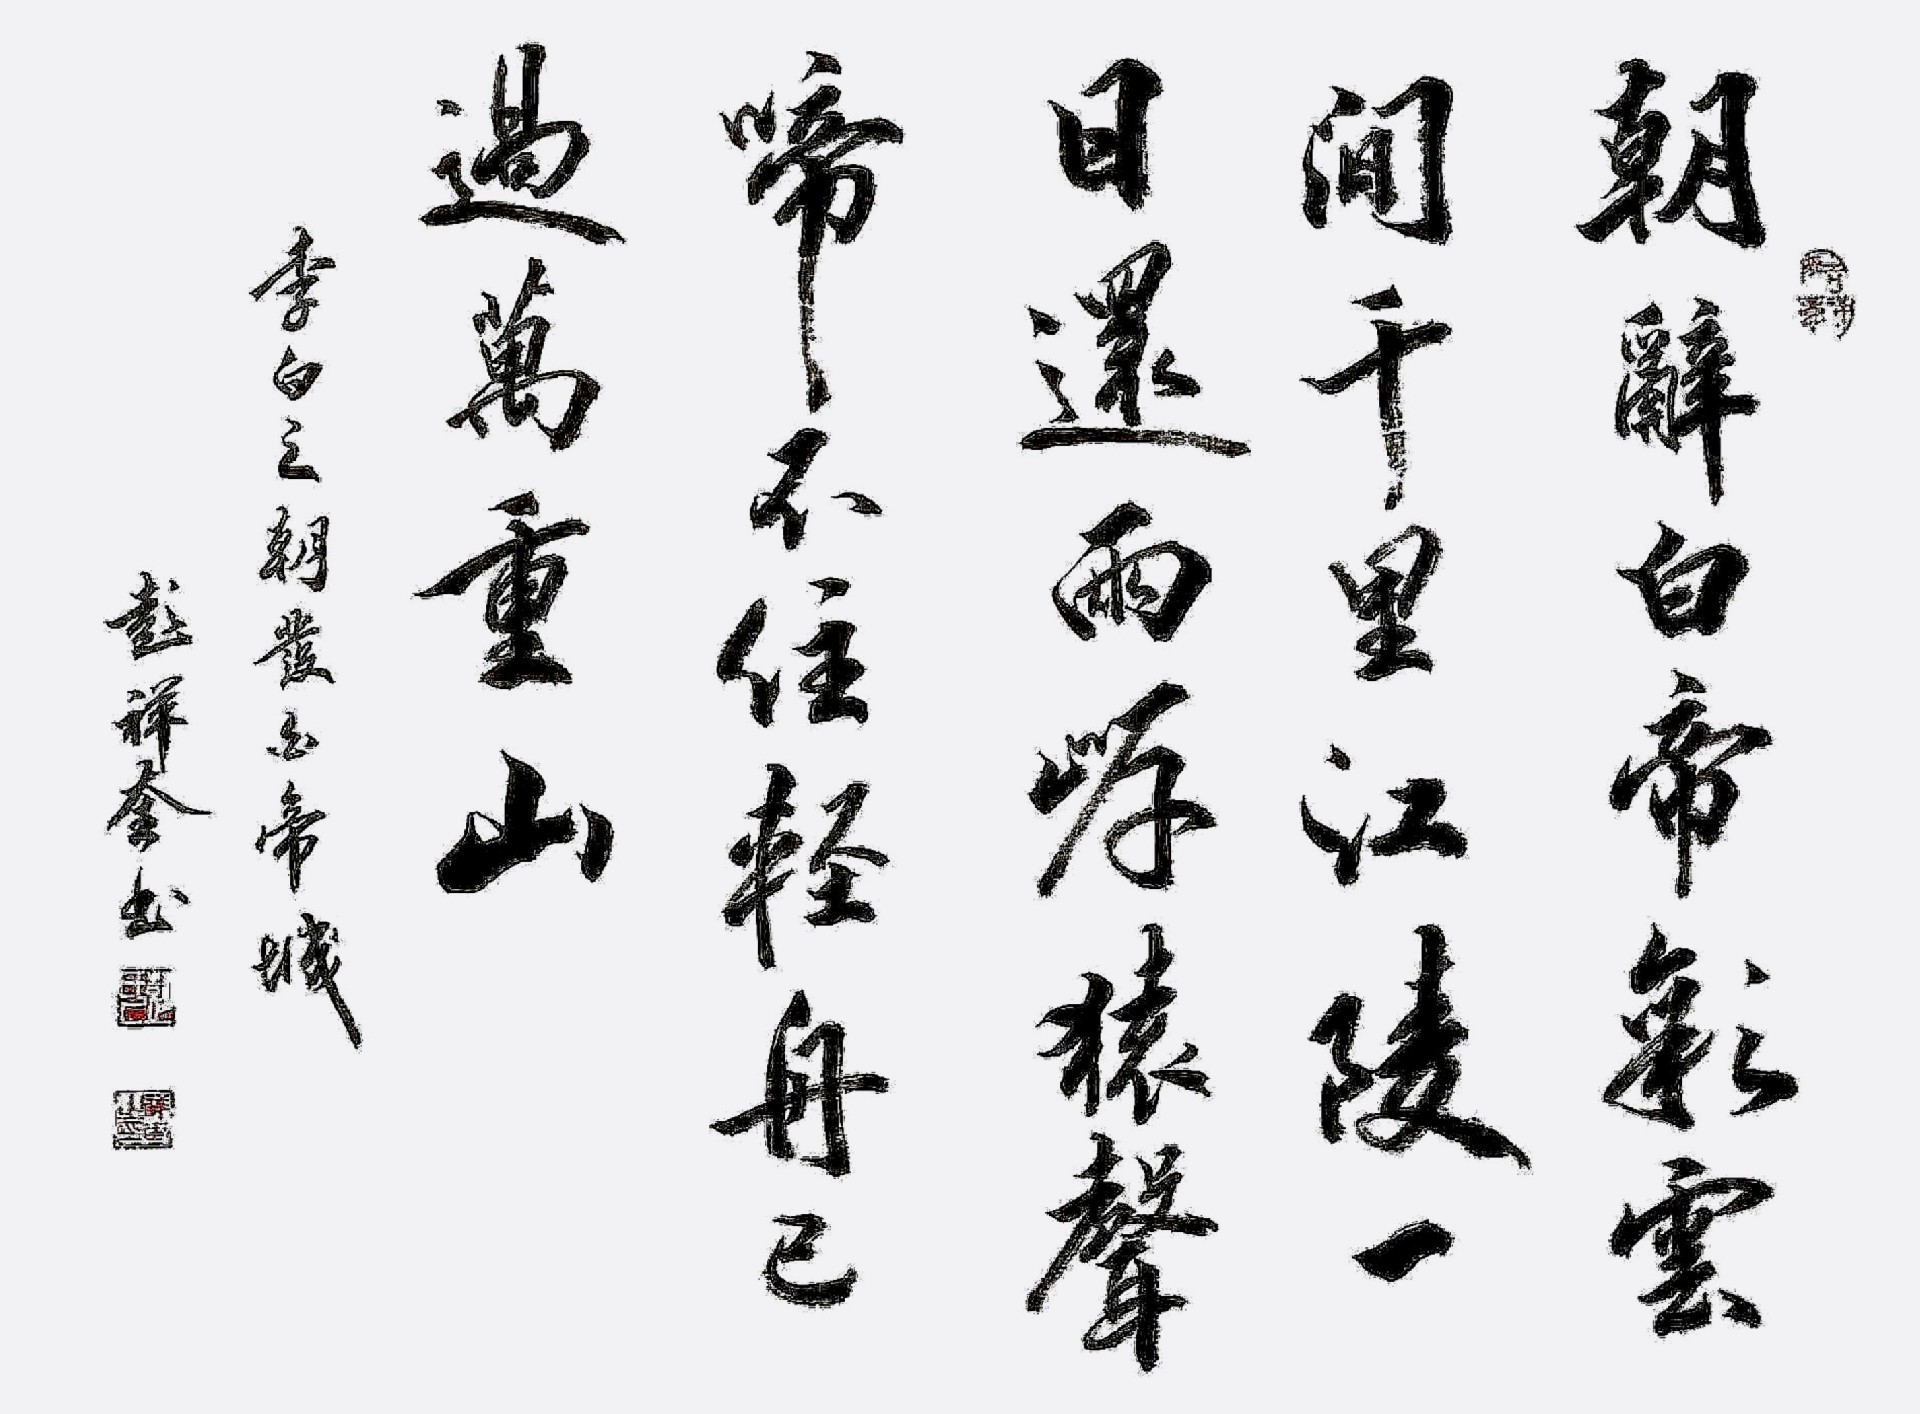 朝辭白帝彩雲
間千里江陵一
日還兩岸猿聲
啼不住輕舟已
過萬重山
李白之朝發白帝城
彭祥奎书